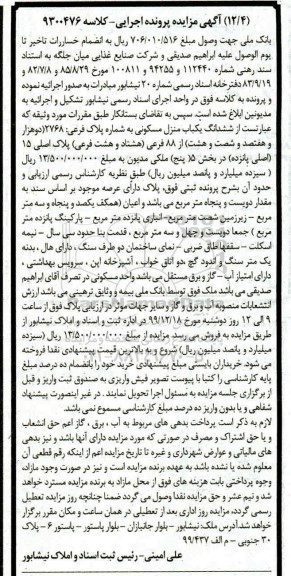 (۱۲/۴) آگهی مزایده پرونده اجرایی- کلاسه ۹۳۰۰۴۷۶
بانک ملی جهت وصول مبلغ ۷۰۶/۰۱۰/۵۱۶ ریال به انضمام خسارات تاخیر تا
یوم الوصول علیه ابراهیم صدیقی و شرکت صنایع غذایی میان جلگه به استناد
سند رهنی شماره ۱۱۲۴۴۰ و ۹۴۲۵۵ و ۱۰۰۸۱۱ مورخ ۸۵/۸/۲۹ و ۸۲/۷/۸ و
۸۳/۹/۱۹ دفترخانه اسناد رسمی شماره ۲۰ نیشابور مبادرت به صدور اجرائیه نموده
و پرونده به کلاسه فوق در واحد اجرای اسناد رسمی نیشابور تشکیل و اجرائیه به
مدیونین ابلاغ شده است. سپس به تقاضای بستانکار طبق مقررات مورد وثیقه که
عبارتست از ششدانگ یکباب منزل مسکونی به شماره پلاک فرعی: ۲۷۶۸(دوهزار
و هفتصد و شصت و هشت) از ۸۸ فرعی (هشتاد و هشت فرعی) پلاک اصلی ۱۵
(اصلی پانزده) در بخش ۵( پنج) ملکی مدیون به مبلغ ۱۳/۵۰۰/۰۰۰/۰۰۰ ریال
( سیزده میلیارد و پانصد میلیون ریال) طبق نظریه کارشناس رسمی ارزیابی و
حدود آن بشرح پرونده ثبتی فوق، پلاک دارای عرصه موجود بر اساس سند به
مقدار دویست و پنجاه متر مربع می باشد و اعیان (همکف یکصد و پنجاه و سه متر
مربع – زیرزمین شصت متر مربع- انباری پانزده متر مربع – پارکینگ پانزده متر
مربع ) جمعا دویست و چهل و سه متر مربع ، قدمت بنا حدود سی سال – نیمه
اسکلت – سقفها طاق ضربی – نمای ساختمان دو طرف سنگ ، دارای هال ، بدنه
یک متر سنگ و اندود گچ، دو اتاق خواب ، آشپزخانه اپن ، سرویس بهداشتی ،
دارای امتیاز آب – گاز و برق مستقل می باشد واحد مسکونی در تصرف آقای ابراهیم
صدیقی می باشد ملک فوق توسط بانک ملی بیمه و وثایق ترهینی می باشد ارزش
انشعابات منصوبه آب و برق و گاز و سایر جهات موثر در ارزیابی پلاک فوق از ساعت
۹ الی ۱۲ روز دوشنبه مورخ ۹۹/۱۲/۱۸ در اداره ثبت و اسناد و املاک نیشابور از
طریق مزایده به فروش می رسد. مزایده از مبلغ ۱۳/۵۰۰/۰۰۰/۰۰۰ ریال (سیزده
میلیارد و پانصد میلیون ریال) شروع و به بالاترین قیمت پیشنهادی نقدا فروخته
می شود. خریداران بایستی مبلغ پیشنهادی خرید خود را بانضمام ده درصد مبلغ
پایه کارشناسی را کتبا با پیوست تصویر فیش واریزی به صندوق ثبت واریز و قبل
از برگزاری جلسه مزایده به مسئول اجرا تحویل نمایند . در غیر اینصورت پیشنهاد
شفاهی و یا بدون واریز ده درصد مبلغ کارشناسی مسموع نمی باشد.
لازم به ذکر است پرداخت بدهی های مربوط به آب ، برق ، گاز اعم حق انشعاب
و یا حق اشتراک و مصرف در صورتی که مورد مزایده دارای آنها باشد و نیز بدهی
های مالیاتی و عوارض شهرداری و غیره تا تاریخ مزایده اعم از اینکه رقم قطعی آن
معلوم شده یا نشده باشد به عهده برنده مزایده است و نیز در صورت وجود مازاد،
وجوه پرداختی بابت هزینه های فوق از محل مازاد به برنده مزایده مسترد خواهد
شد و نیم عشر و حق مزایده نقدا وصول می گردد ضمنا چنانچه روز مزایده تعطیل
رسمی گردد، مزایده روز اداری بعد از تعطیلی در همان ساعت و مکان مقرر برگزار
خواهد شد.آدرس ملک: نیشابور – بلوار جانبازان – بلوار پاستور – پاستور ۶ - پلاک
۳۰ جنوبی – م الف ۹۹/۴۳۷
علی امینی- رئیس ثبت اسناد و املاک نیشابور